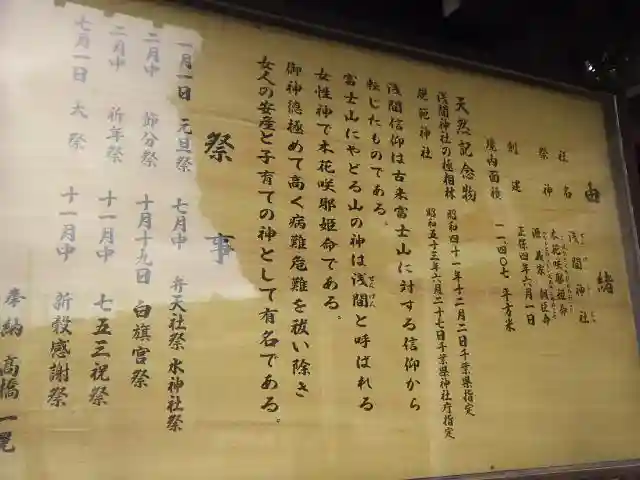 由緒
社名 浅間神社
せんげんじんじゃ
祭神 木花咲耶姫命
源義家 彦火々出見命
創建 正保四年六月一日
境内面積 一一四〇七平方米
天然記念物
浅間神社の極相林 昭和四十一年十二月二日千葉県指定
規範神社 昭和五十三年六月二十七日千葉県神社庁指定
浅間信仰は古来富士山に対する信仰から
転じたものである。
富士山にやどる山の神は浅間と呼ばれる
せんげん
女性神で木花咲耶姫命である。
御神徳極めて高く病難危難を祓い除き
女人の安産と子育ての神として有名である。
祭事
一月一日 元旦祭 七月中 弁天社祭 水神社祭
二月中 節分祭 十月十九日 白旗宮祭
二月中 祈年祭 十一月中 七五三祝祭
七月一日 大祭 十一月中 新穀感謝祭
奉納 高橋一